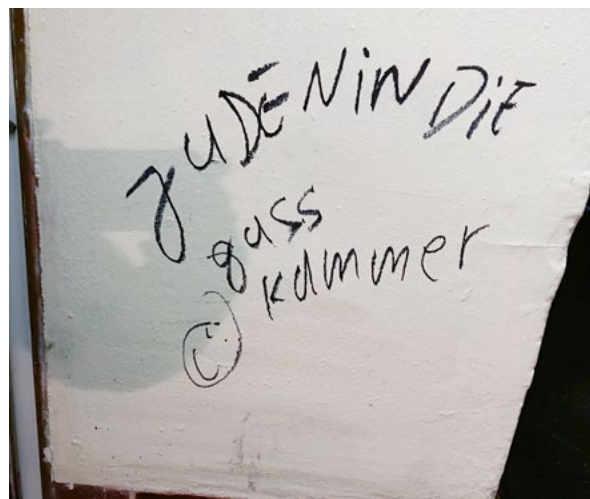 JUDEN IN DIE
gass
kammer